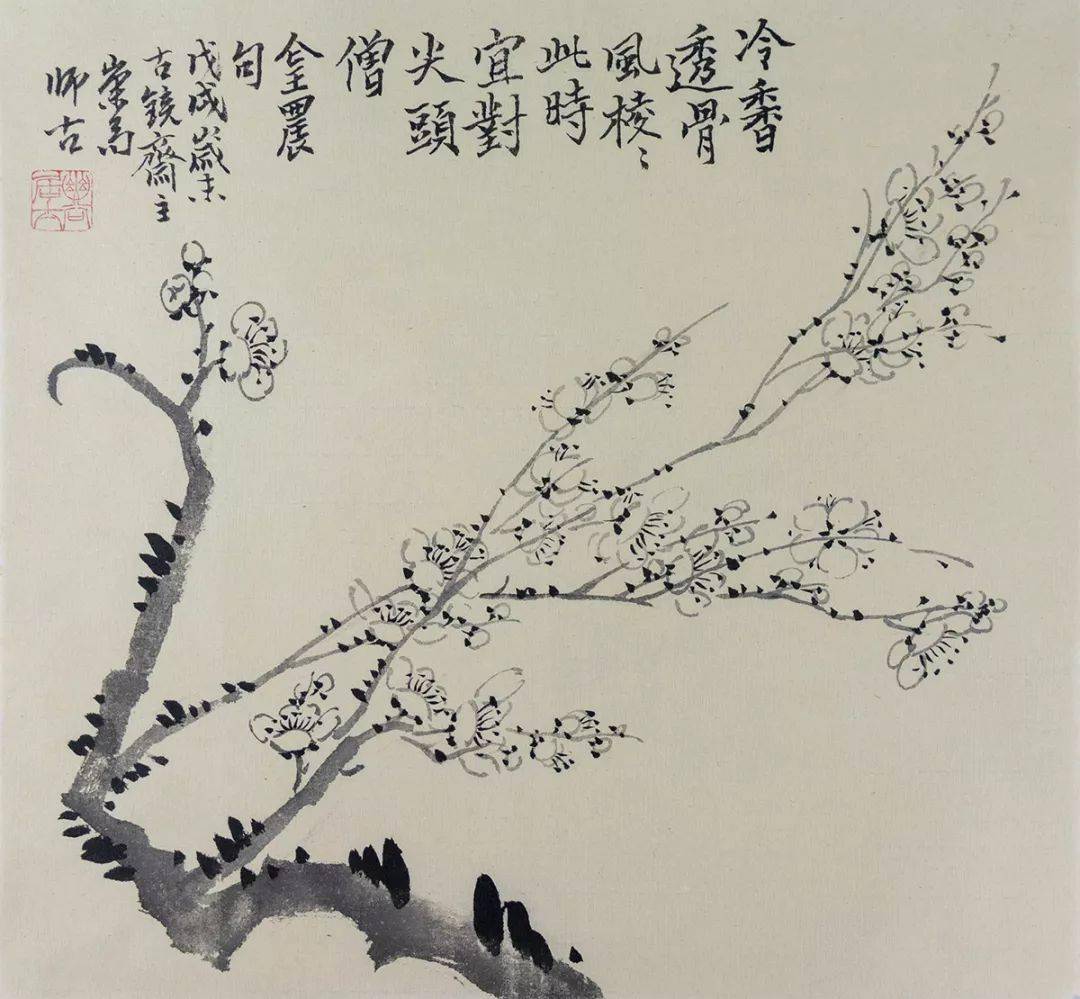 冷香
透骨
風棱〻
此時
宜對
尖頭
僧
金農
句
戊戌歲末
古鏡齋主
崇
师古